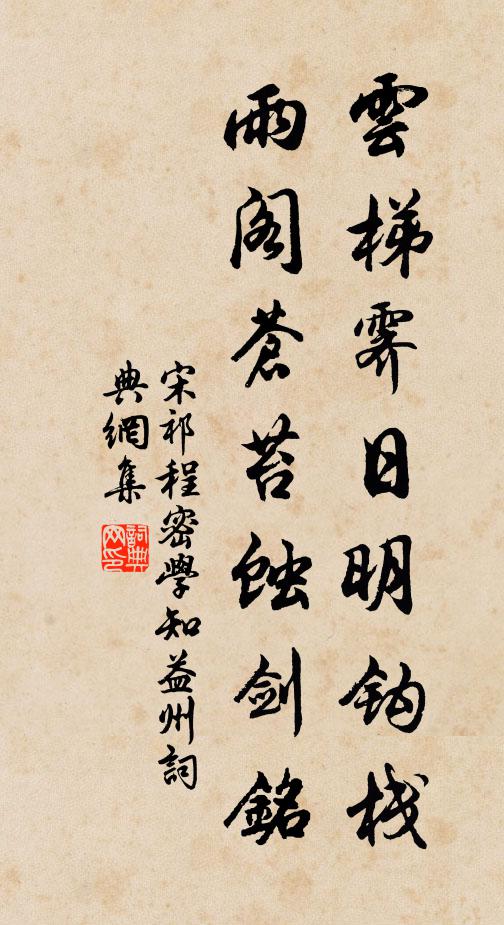 雲梯霽日明鈎棧
雨阁蒼苔蝕剑銘
宋祁程密學知益州詞
典網集
詞典
网印